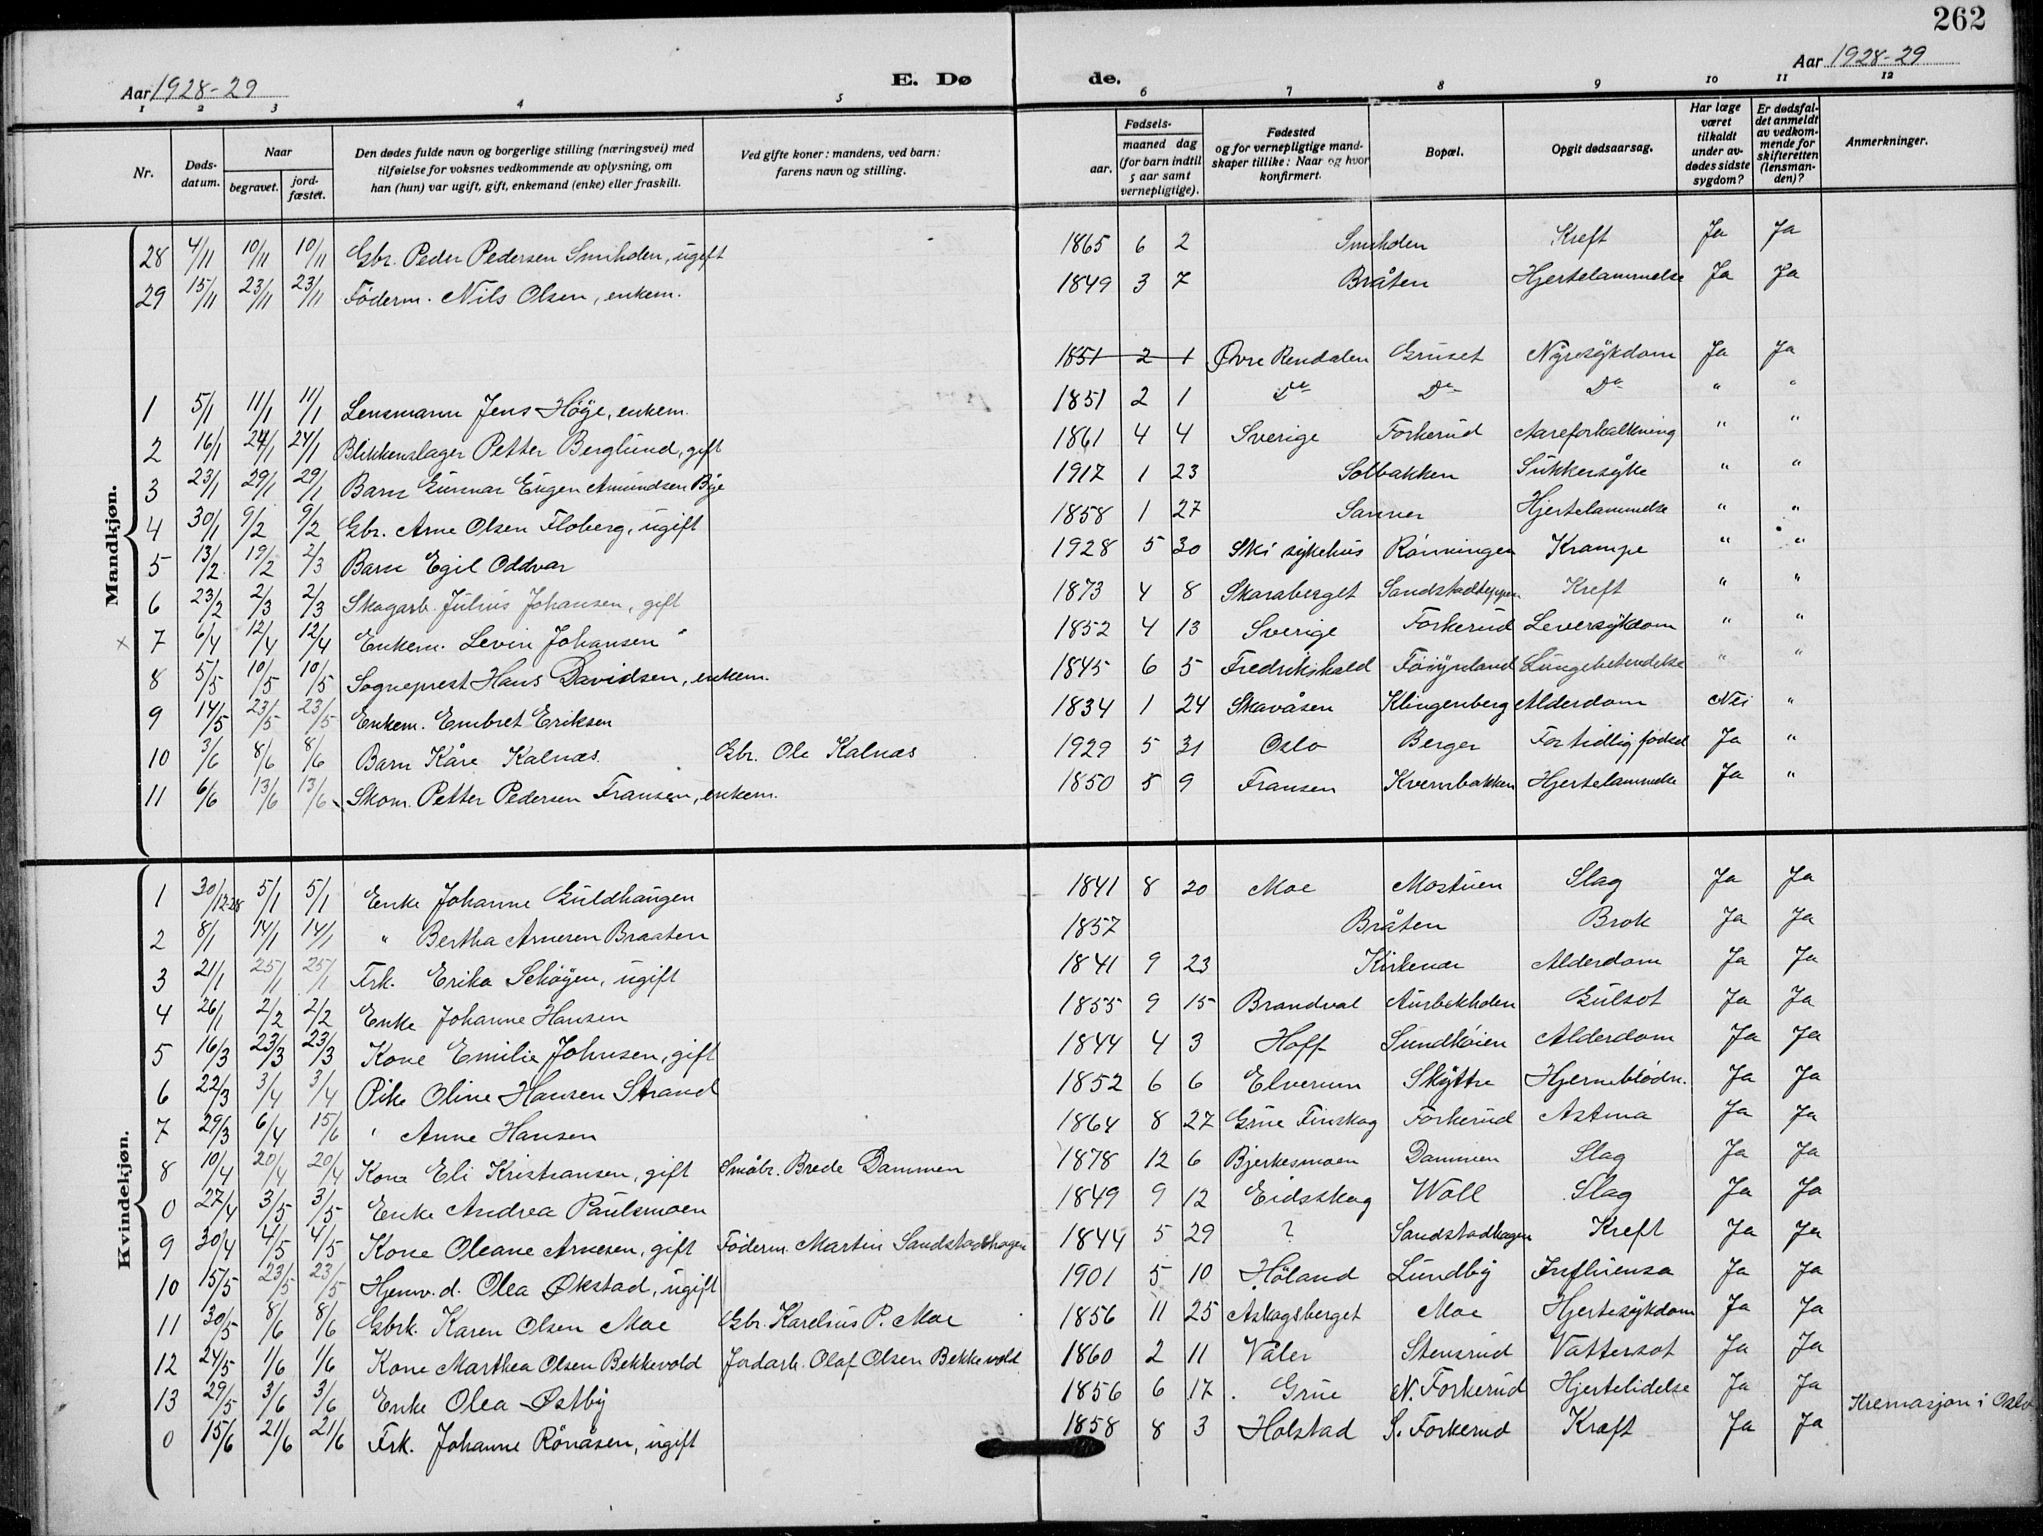 262
Aar 1928-29
E. Dø
de.
Aar 1928-29
1 2 3 4 5 6 7 8 9 10 11 12
Nr.
Døds-
datum.
Naar
begravet.
jord-
fæstet.
Den dødes fulde navn og borgerlige stilling (næringsvei) med
tilføielse for voksnes vedkommende av oplysning, om
han (hun) var ugift, gift, enkemand (enke) eller fraskilt.
Ved gifte koner: mandens, ved barn:
farens navn og stilling.
Fødsels-
aar.
maaned dag
(for barn indtil
5 aar samt
vernepligtige).
Fødested
og for vernepligtige mand-
skaper tillike: Naar og hvor
konfirmert.
Bopæl.
Opgit dødsaarsag.
Har læge
været
tilkaldt
under av-
dødes sidste
sygdom?
Er dødsfal-
det anmeldt
av vedkom-
mende for
skifteretten
(lensman-
den)?
Anmerkninger.
Mandkjøn.
28 4/11 10/11 10/11 Gbr. Peder Pedersen Smiholen, ugift 1865 6 2 Smiholen Kreft Ja Ja
29 15/11 23/11 23/11 Föderm. Nils Olsen, enkem. 1849 3 7 Bråten Hjertelammelse Ja Ja
1851 2 1 Øvre Rendalen Gruset Nyresykdom Ja Ja
1 5/1 11/1 11/1 Lensmann Jens Höye, enkem. 1851 2 1 Do Do Do " "
2 16/1 24/1 24/1 Blikkenslager Petter Berglund, gift 1861 4 4 Sverige Forkerud Aareforkalkning " "
3 23/1 29/1 29/1 Barn Gunnar Eugen Amundsen Bye 1917 1 23 Solbakken Sukkersyke " "
4 30/1 9/2 9/2 Gbr. Arne Olsen Floberg, ugift 1858 1 27 Sanner Hjertelammelse " "
5 13/2 19/2 2/3 Barn Egil Oddvar 1928 5 30 Ski sykehus Rönningen Krampe " "
6 23/2 2/3 2/3 Skogarb. Julius Johansen, gift 1873 4 8 Skaraberget Sandstadteppen Kreft " "
x 7 6/4 12/4 12/4 Enkem. Levin Johansen " 1852 4 13 Sverige Forkerud Leversykdom " "
8 5/5 10/5 10/5 Sogneprest Hans Davidsen, enkem. 1845 6 5 Fredrikshald Föiynland Lungebetendelse " "
9 14/5 23/5 23/5 Enkem. Embret Eriksen 1834 1 24 Skavåsen Klingenberg Alderdom Nei "
10 3/6 8/6 8/6 Barn Kåre Kalnæs. Gbr. Ole Kalnæs 1929 5 31 Oslo Berger For tidlig födsel Ja "
11 6/6 13/6 13/6 Skom. Petter Pedersen Fransen, enkem. 1850 5 9 Fransen Kvernbakken Hjertelammelse Ja "
Kvindekjøn.
1 30/12-28 5/1 5/1 Enke Johanne Guldhaugen 1841 8 20 Moe Mostuen Slag Ja Ja
2 8/1 14/1 14/1 " Bertha Arnesen Braaten 1857 Bråten Brok Ja Ja
3 21/1 25/1 25/1 Frk. Erika Schöyen, ugift 1841 9 23 Kirkenær Alderdom Ja Ja
4 26/1 2/2 2/2 Enke Johanne Hansen 1855 9 15 Brandval Aurbekholen Gulsot Ja Ja
5 16/3 23/3 23/3 Kone Emilie Johnsen, gift 1844 4 3 Hoff Sundköien Alderdom Ja Ja
6 22/3 3/4 3/4 Pike Oline Hansen Strand 1852 6 6 Elverum Skyttre Hjerneblödn. Ja Ja
7 29/3 6/4 15/6 " Anne Hansen 1864 8 27 Grue Finskog Forkerud Astma Ja Ja
8 10/4 20/4 20/4 Kone Eli Kristiansen, gift Småbr. Brede Dammen 1878 12 6 Bjerkesmoen Dammen Slag Ja Ja
0 27/4 3/5 3/5 Enke Andrea Paulsmoen 1849 9 12 Eidsskog Woll Slag Ja Ja
9 30/4 4/5 4/5 Kone Oleane Arnesen, gift Föderm. Martin Sandstadhagen 1844 5 29 ? Sandstadhagen Kreft Ja Ja
10 15/5 23/5 23/5 Hjemv.d. Olea Økstad, ugift 1901 5 10 Höland Lundby Influensa Ja Ja
11 30/5 8/6 8/6 Gbrk. Karen Olsen Moe Gbr. Karelius P. Moe 1856 11 25 Askogsberget Moe Hjertesykdom Ja Ja
12 24/5 1/6 1/6 Kone Marthea Olsen Bekkevold Jordarb. Olaf Olsen Bekkevold 1860 2 11 Våler Stensrud Vattersot Ja Ja
13 29/5 3/6 3/6 Enke Olea Østby 1856 6 17 Grue N. Forkerud Hjertelidelse Ja Ja
0 15/6 21/6 21/6 Frk. Johanne Rönåsen, ugift 1858 8 3 Holstad S. Forkerud Kræft Ja Ja Kremasjon i Oslo